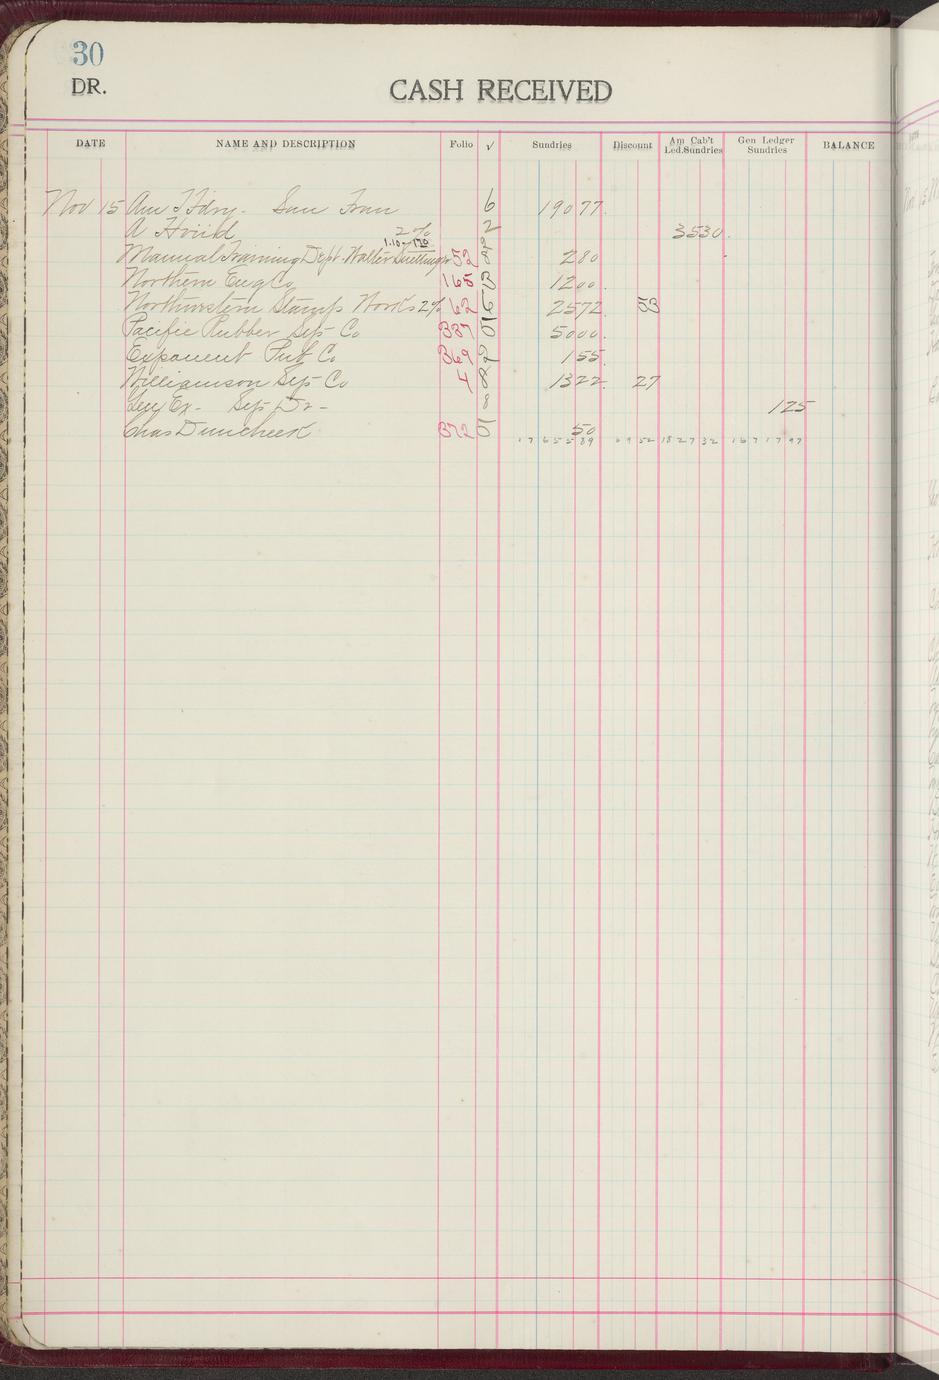 30
DR.
CASH RECEIVED
DATE NAME AND DESCRIPTION Folio √ Sundries Discount Am Cab't Led.Sundries Gen Ledger Sundries BALANCE
Nov 15 Am T Fdry. San Fran 6 190 77
A 2% 2 35 30
1.10
Manual Training Dept. Walter 52 8 2 80
Northern Eng Co 165 12 00
Northwestern Stamp Works 2% 62 25 72 53
Pacific Rubber Sup Co 387 50 00
Exponent Pub Co 369 1 55
Williamson Sup Co 4 8 13 22 27
Gen Ex - Sup Dr - 8 1 25
Chas 372 50
17 655 89 69 52 1827 32 1671 97